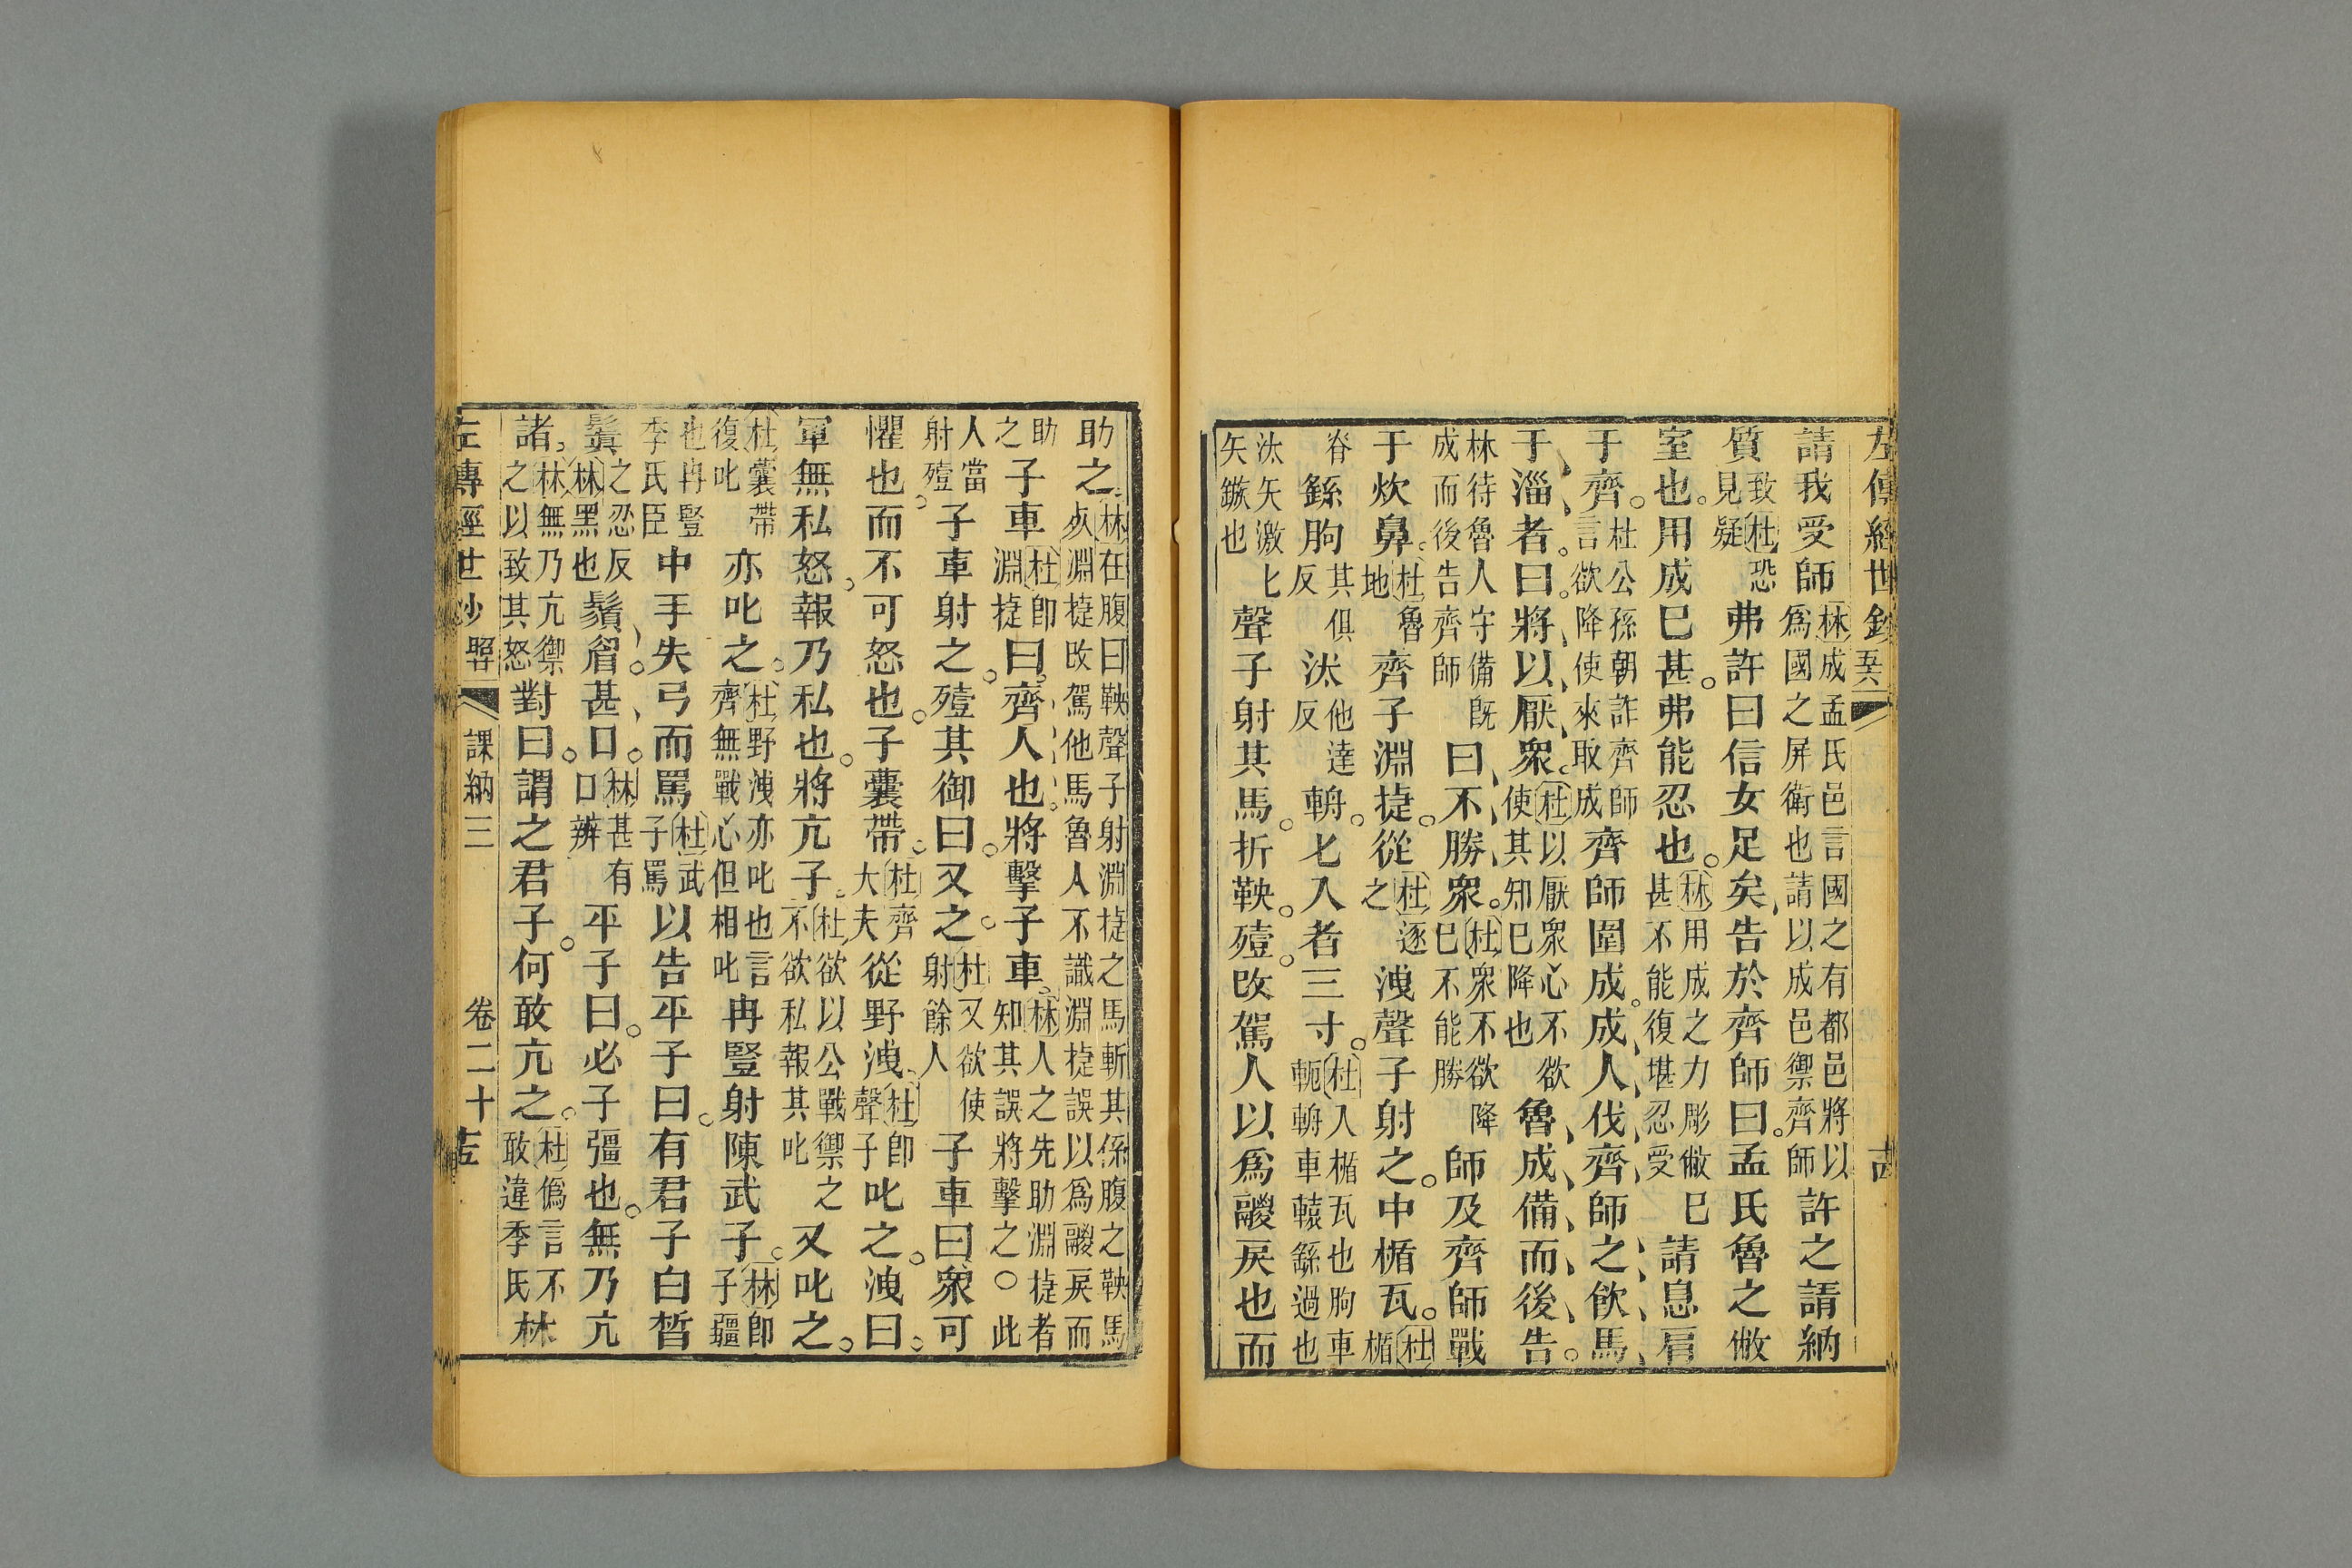 左傳經世鈔
請我受師林成孟氏邑言國之有都邑將以爲國之屏衛也請以成邑禦齊師許之請納
質致杜恐見疑弗許曰信女足矣告於齊師曰孟氏魯之敝
室也用成已甚弗能忍也林用成之力彫敝已甚不能復堪忍受請息肩
于齊杜公孫朝詐齊師言欲降使來取成齊師圍成成人伐齊師之飲馬
于淄者曰將以厭衆杜以厭衆心不欲使其知已降也魯成備而後告
林待魯人守備既成而後告齊師曰不勝衆杜衆不欲降已不能勝師及齊師戰
于炊鼻杜魯地齊子淵捷從杜逐之洩聲子射之中楯瓦杜楯
脊繇胊其俱反汰他達反輈匕入者三寸杜入楯瓦也胊車軛輈車轅繇過也
汰矢激匕矢鏃也聲子射其馬折鞅殪改駕人以爲鬷戾也而
助之林在腹曰鞅聲子射淵捷之馬斬其係腹之鞅馬㱕淵捷改駕他馬魯人不識淵捷誤以爲鬷戾而
助之子車杜卽淵捷曰齊人也將擊子車林人之先助淵捷者知其誤將擊之○此
人當射殪子車射之殪其御曰又之杜又欲使射餘人子車曰衆可
懼也而不可怒也子囊帶杜齊大夫從野洩杜卽聲子叱之洩曰
軍無私怒報乃私也將亢子杜欲以公戰禦之不欲私報其叱又叱之
杜囊帶復叱亦叱之杜野洩亦叱也言齊無戰心但相叱冉豎射陳武子林卽子彊
也冉豎季氏臣中手失弓而罵杜武子罵以告平子曰有君子白皙
鬒之忍反林黑也鬚眉甚口林甚有口辨平子曰必子彊也無乃亢
諸林無乃亢禦之以致其怒對曰謂之君子何敢亢之杜僞言不敢違季氏林
左傳經世鈔 昭 課納三 卷二十